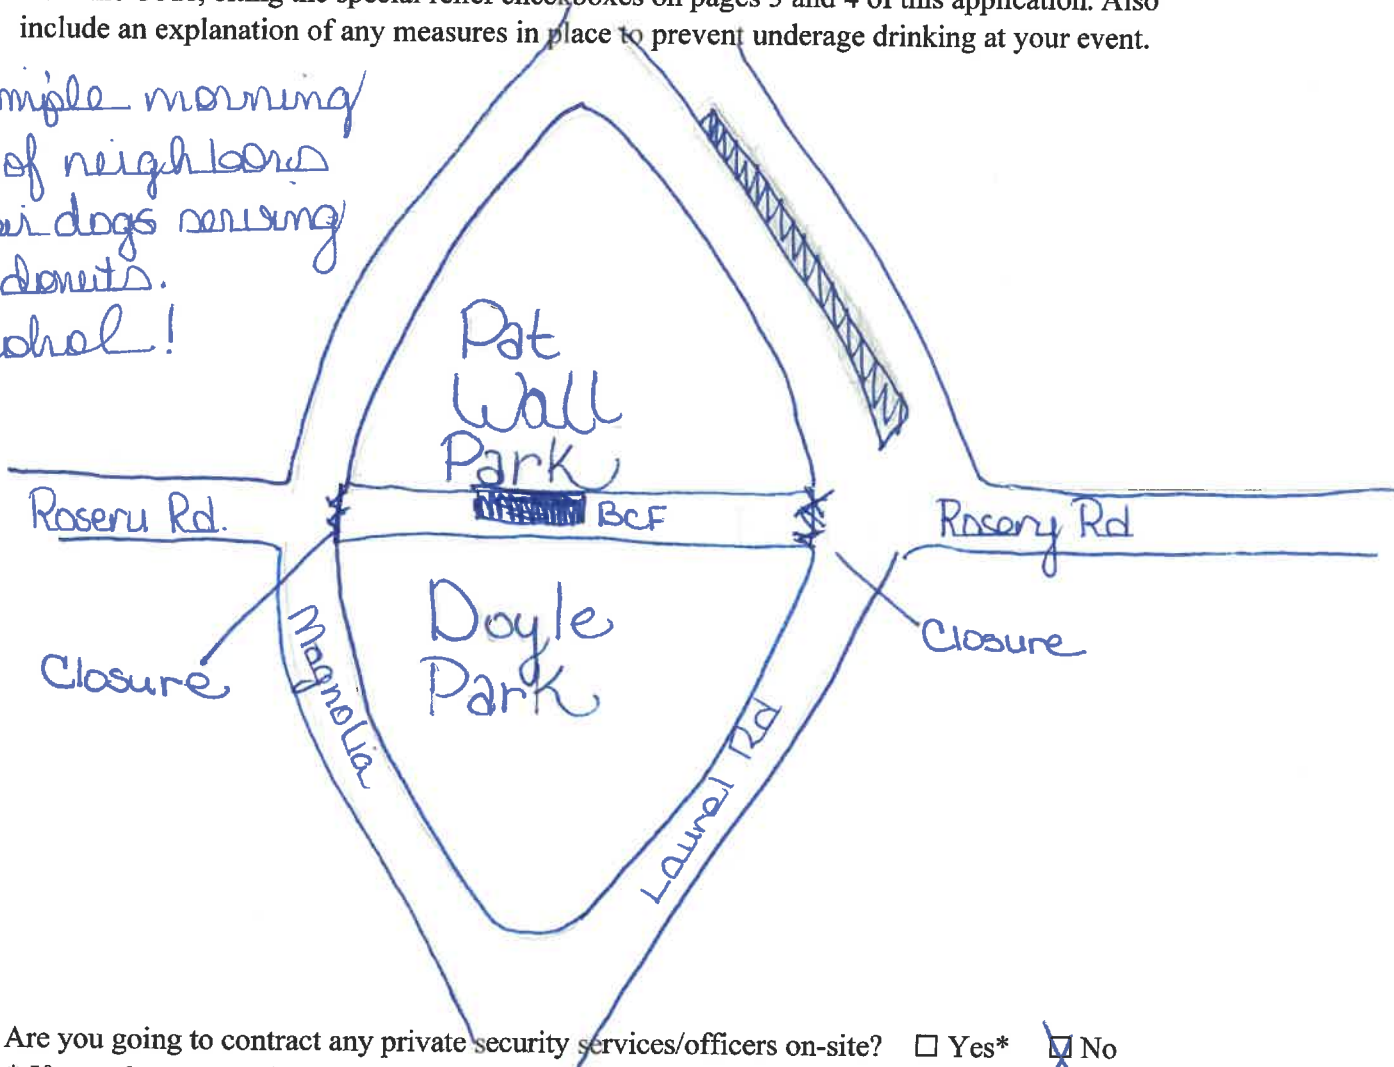 include an explanation of any measures in place to prevent underage drinking at your event.
morning
of neighbors
dogs serving
donuts.
!
Pat
Wall
Park
Roseru Rd.
BCF
Rosery Rd
Closure
Magnolia
Doyle
Park
Closure
Laurel Rd
Are you going to contract any private security services/officers on-site? ☐ Yes* ☒ No